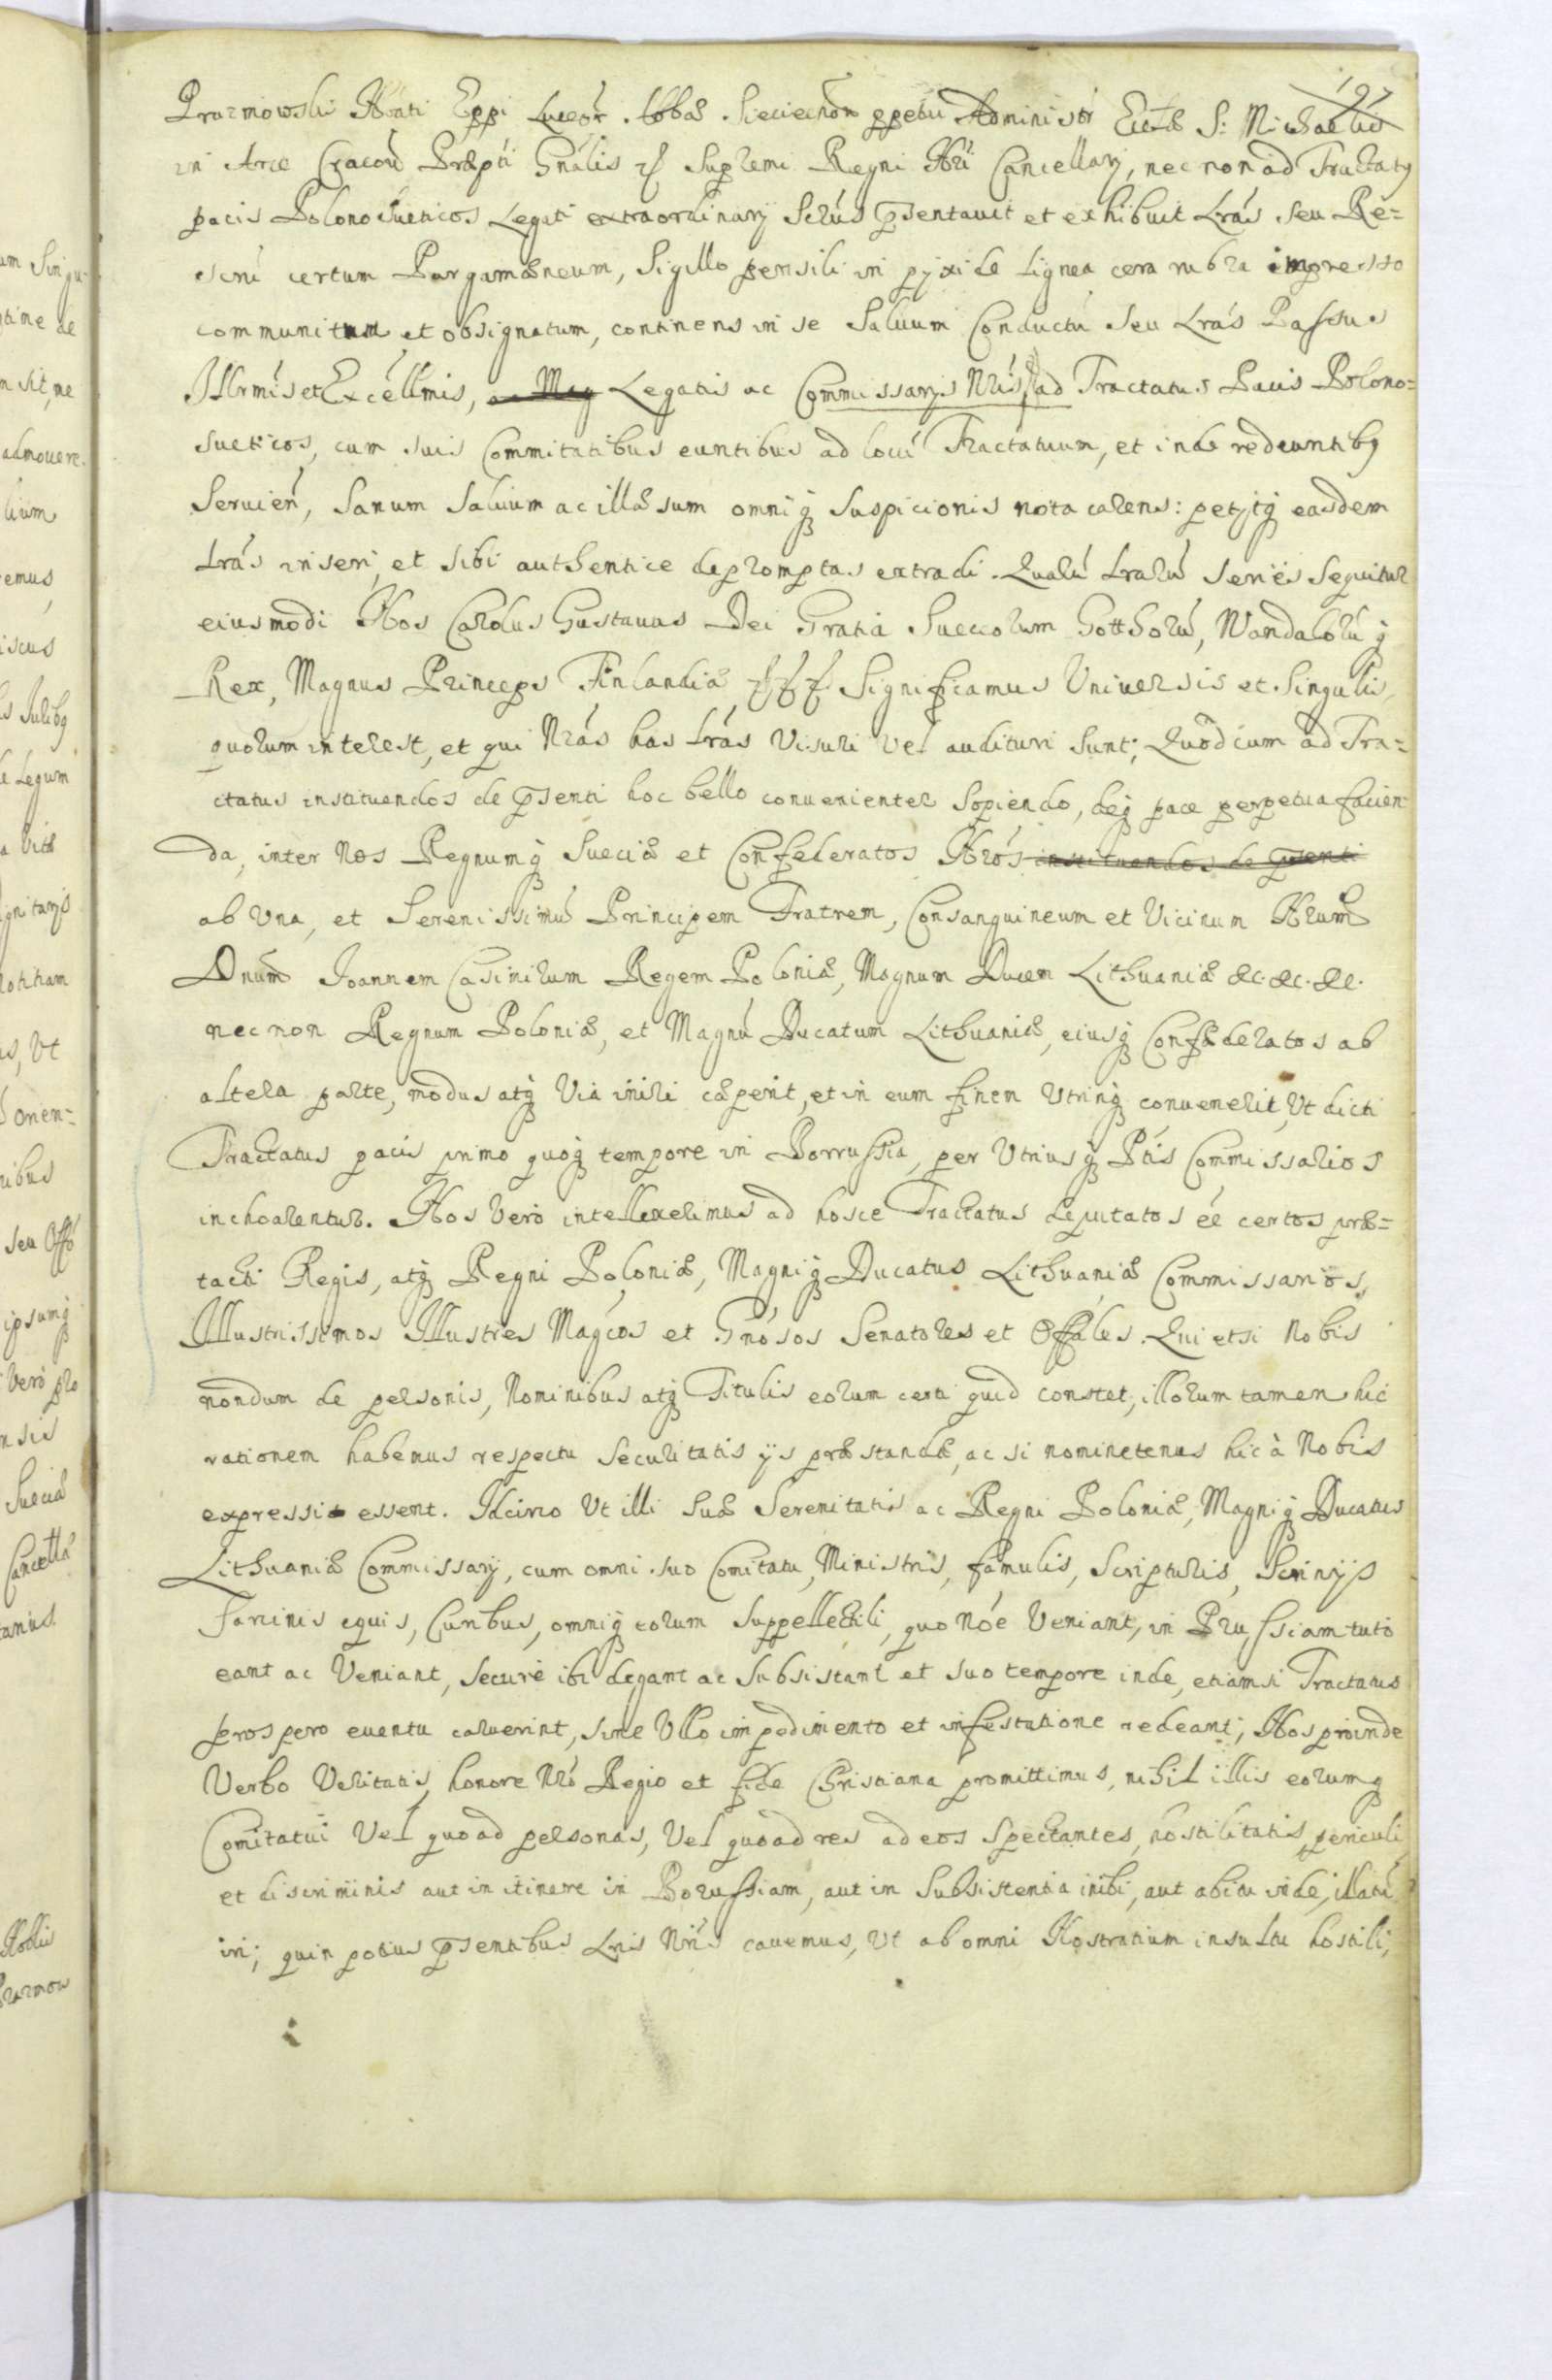 197
Prazmowski Nōati Eppi Luceōr. Abbāe. Sieciechōn ppetui Administr Ecclæ S: Michaelis
in Arce Cracoū Præpti Gnālis et Supremi Regni Nri Cancellarij, nec non ad Tractatq
pacis Polono Sueticos Legati extraordinarij pˉsentauit et exhibuit Lrás seu Re=
certum Pargamæneum, Sigillo pensili in pyxide Lignea cera rubra impresso
communitum et obsignatum, continens in se Saluum Conductú seu Lrás Passus
Illrmis et Excéllmis, ac Mag Legatis ac Commissarijs Nris, ad Tractatus Pacis Polono=
sueticos, cum suis Commitatibus euntibus ad locú Tractatuum, et inde redeuntibq
Seruień, Sanum Saluum ac illæsum omniq Suspicionis nota carens: petijtq easdem
Lrás inseri, et sibi authentice depromptas extradi. Quarú Lrarú series sequitur
eiusmodi Nos Carolus Gustauus Dei Gratia Suecorum Gotthorú, Wandalorú q
Rex, Magnus Princeps Finlandiæ, &c &c &c Significamus Uniuersis et Singulis
quorum interest, et qui Nrás has Lrás Visuri Vel audituri Sunt; Quod cum ad Tra=
ctatus instituendos de pˉsenti hoc bello conuenienter Sopiendo, deq pace perpetua facien
da, inter Nos Regnumq Sueciæ et Confederatos Nrós instituendos de pˉsenti
ab Una, et Serenissimú Principem Fratrem, Consanguineum et Vicinum Nrum
Dnum Joannem Casimirum Regem Poloniæ, Magnum Ducem Lithuaniæ &c. &c. &c.
nec non Regnum Poloniæ, et Magnú Ducatum Lithuaniæ, eiusq Confæderatos ab
altera parte, modus atq Via iniri cæperit, et in eum finem Utrinq conuenerit, Ut dicti
Tractatus pacis primo quoq tempore in Borrussia, per Utriusq Ptis Commissarios
inchoarentur. Nos Vero intellexerimus ad hosce Tractatus deputatos éé certos præ=
tacti Regis, atq Regni Poloniæ, Magniq Ducatus Lithuaniæ Commissarios,
Illustrissimos Illustres Mag̃cos et Gnósos Senatores et Offáles. Qui etsi Nobis
nondum de personis, Nominibus atq Titulis eorum certi quid constet, illorum tamen hic
rationem habemus respectu Securitatis ijs præstandæ, ac si nominetenus hic à Nobis
expressi essent. Idcirco Ut illi Suæ Serenitatis ac Regni Poloniæ, Magniq Ducatus
Lithuaniæ Commissarij, cum omni suo Comitatu, Ministris, famulis, Scripturis, Scrinijs
sarcinis equis, Curribus, omniq eorum Suppellectili, quo Nóe Veniant, in Prussiam tutò
eant ac Veniant, securè ibi degant ac Subsistant et suo tempore inde, etiamsi Tractatus
prospero euentu caruerint, sine Ullo impedimento et infestatione redeant; Nos proinde
Verbo Veritatis, honore Nró Regio et fide Christiana promittimus, nihil illis eorumq
Comitatui Vel quoad personas, Vel quoad res ad eos Spectantes, hostilitatis, periculi
et discriminis aut in itinere in Borussiam, aut in Subsistentia inibi, aut abitu inde, illatú
iri; quin potius pˉsentibus Lris Nris cauemus, Ut ab omni Nostratium insultu hostili,